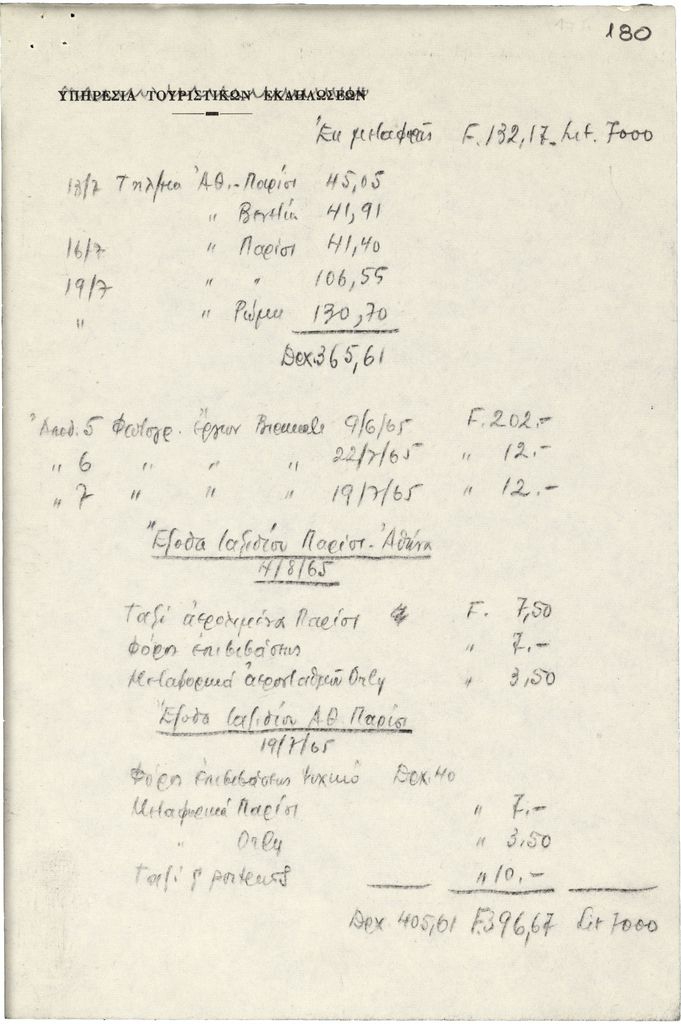 180
ΥΠΗΡΕΣΙΑ ΤΟΥΡΙΣΤΙΚΩΝ ΕΚΔΗΛΩΣΕΩΝ
Ἐκ μεταφορᾶς F. 132,17 Lit. 7000
13/7 Τηλ/μα Ἀθ.-Παρίσι 45,05
" Βενετία 41,91
16/7 " Παρίσι 41,40
19/7 " " 106,55
" " Ρώμη 130,70
Δρχ 365,61
Ἀποδ. 5 Φωτογρ. ἔργων Biennale 9/6/65 F. 202.-
" 6 " " " 22/7/65 " 12.-
" 7 " " " 19/7/65 " 12.-
Ἔξοδα ταξιδίου Παρίσι-Ἀθήνα
4/8/65
Ταξί ἀερολιμένα Παρίσι F. 7,50
Φόρος ἐπιβιβάσεως " 7.-
Μεταφορικά ἀεροσταθμοῦ Orly " 3,50
Ἔξοδα ταξιδίου Ἀθ. Παρίσι
19/7/65
Φόρος ἐπιβιβάσεως Δρχ. 40
Μεταφορικά Παρίσι " 7.-
" Orly " 3.50
Ταξί porteurs " 10.-
Δρχ 405,61 F. 396,67 Lit 7000